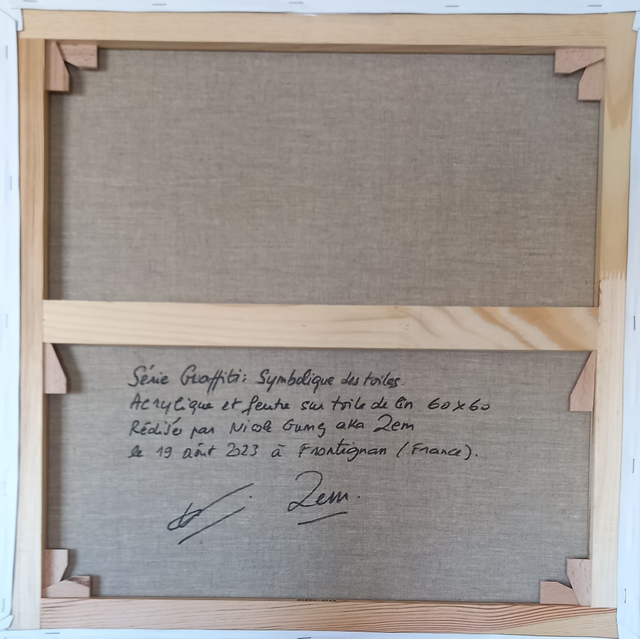 Série Graffiti: Symbolique des toiles.
Acrylique et feutre sur toile de lin 60x60
Réalisé par Nicole Gung aka Zem
le 19 août 2023 à Frontignan (France).
Zem.